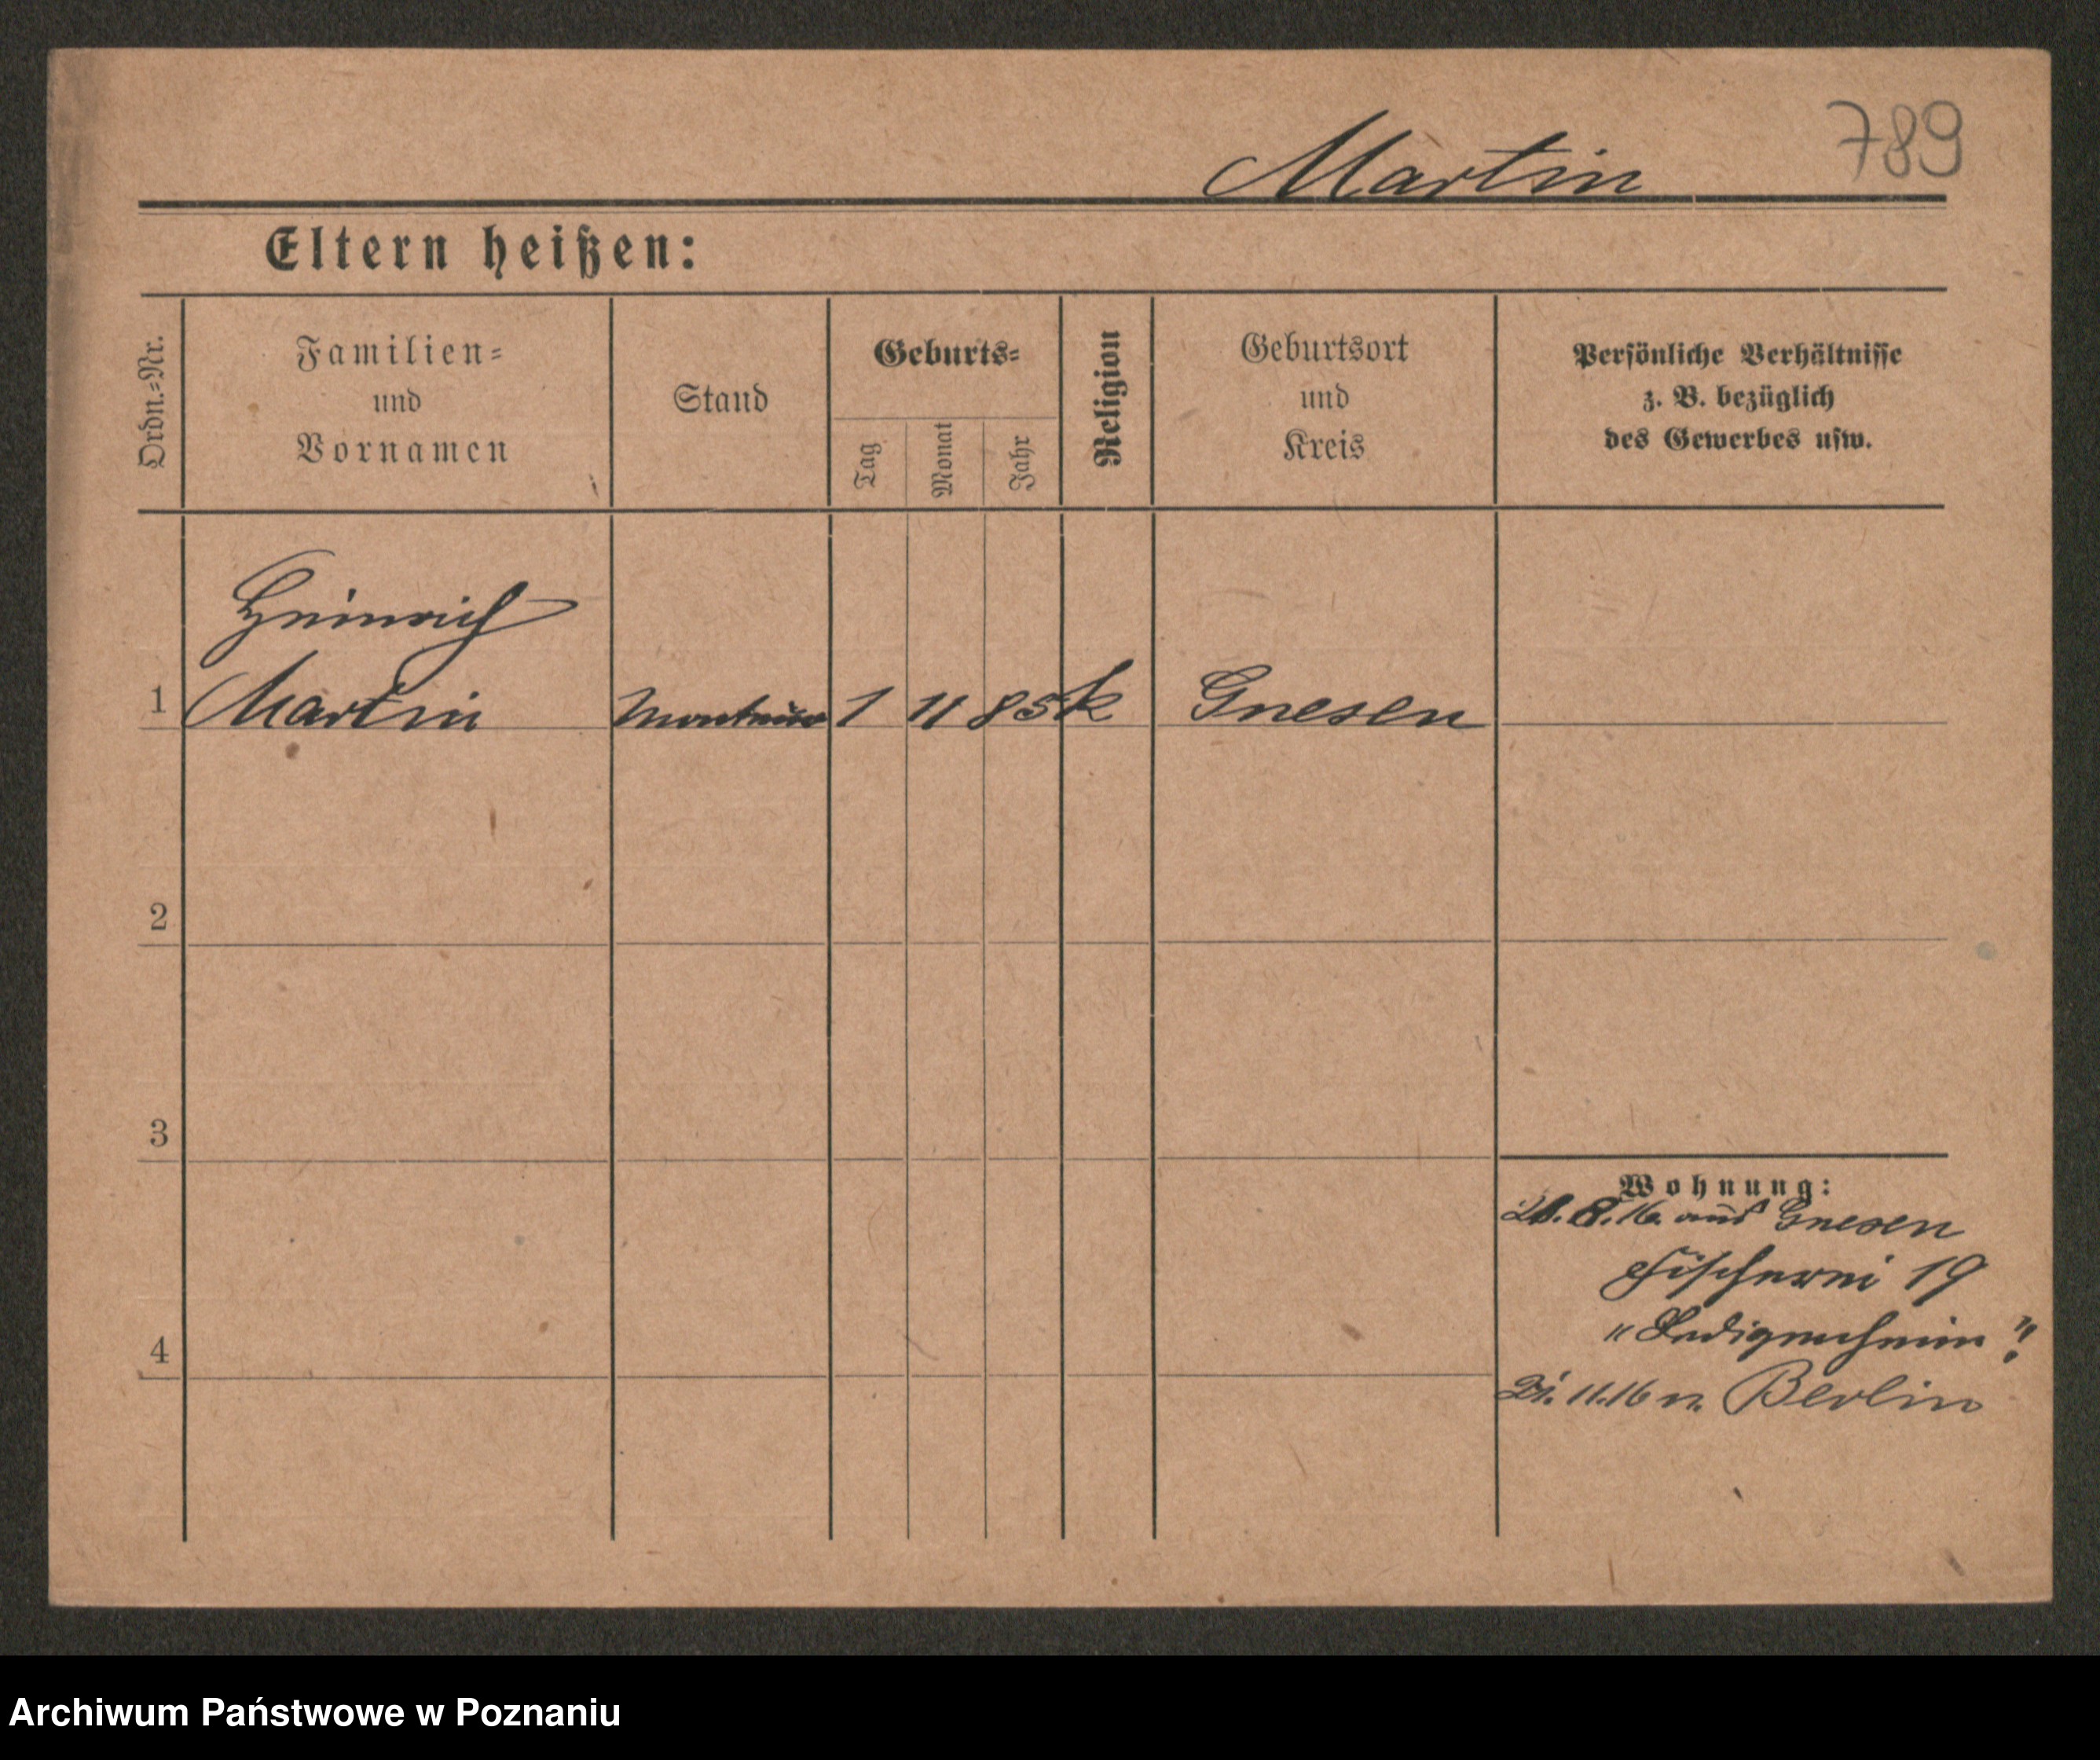 789
Martin
Eltern heißen:
Ordn.=Nr.
Familien=
und
Vornamen
Stand
Geburts=
Tag
Monat
Jahr
Religion
Geburtsort
und
Kreis
Persönliche Verhältnisse
z. B. bezüglich
des Gewerbes usw.
Heinrich
1 Martin Monteur 1 11 85 k Gnesen
2
3
4
Wohnung:
8. 16. aus Gnesen
Fischerei 19
"Ledigenheim"
21. 11. 16 n. Berlin
Archiwum Państwowe w Poznaniu